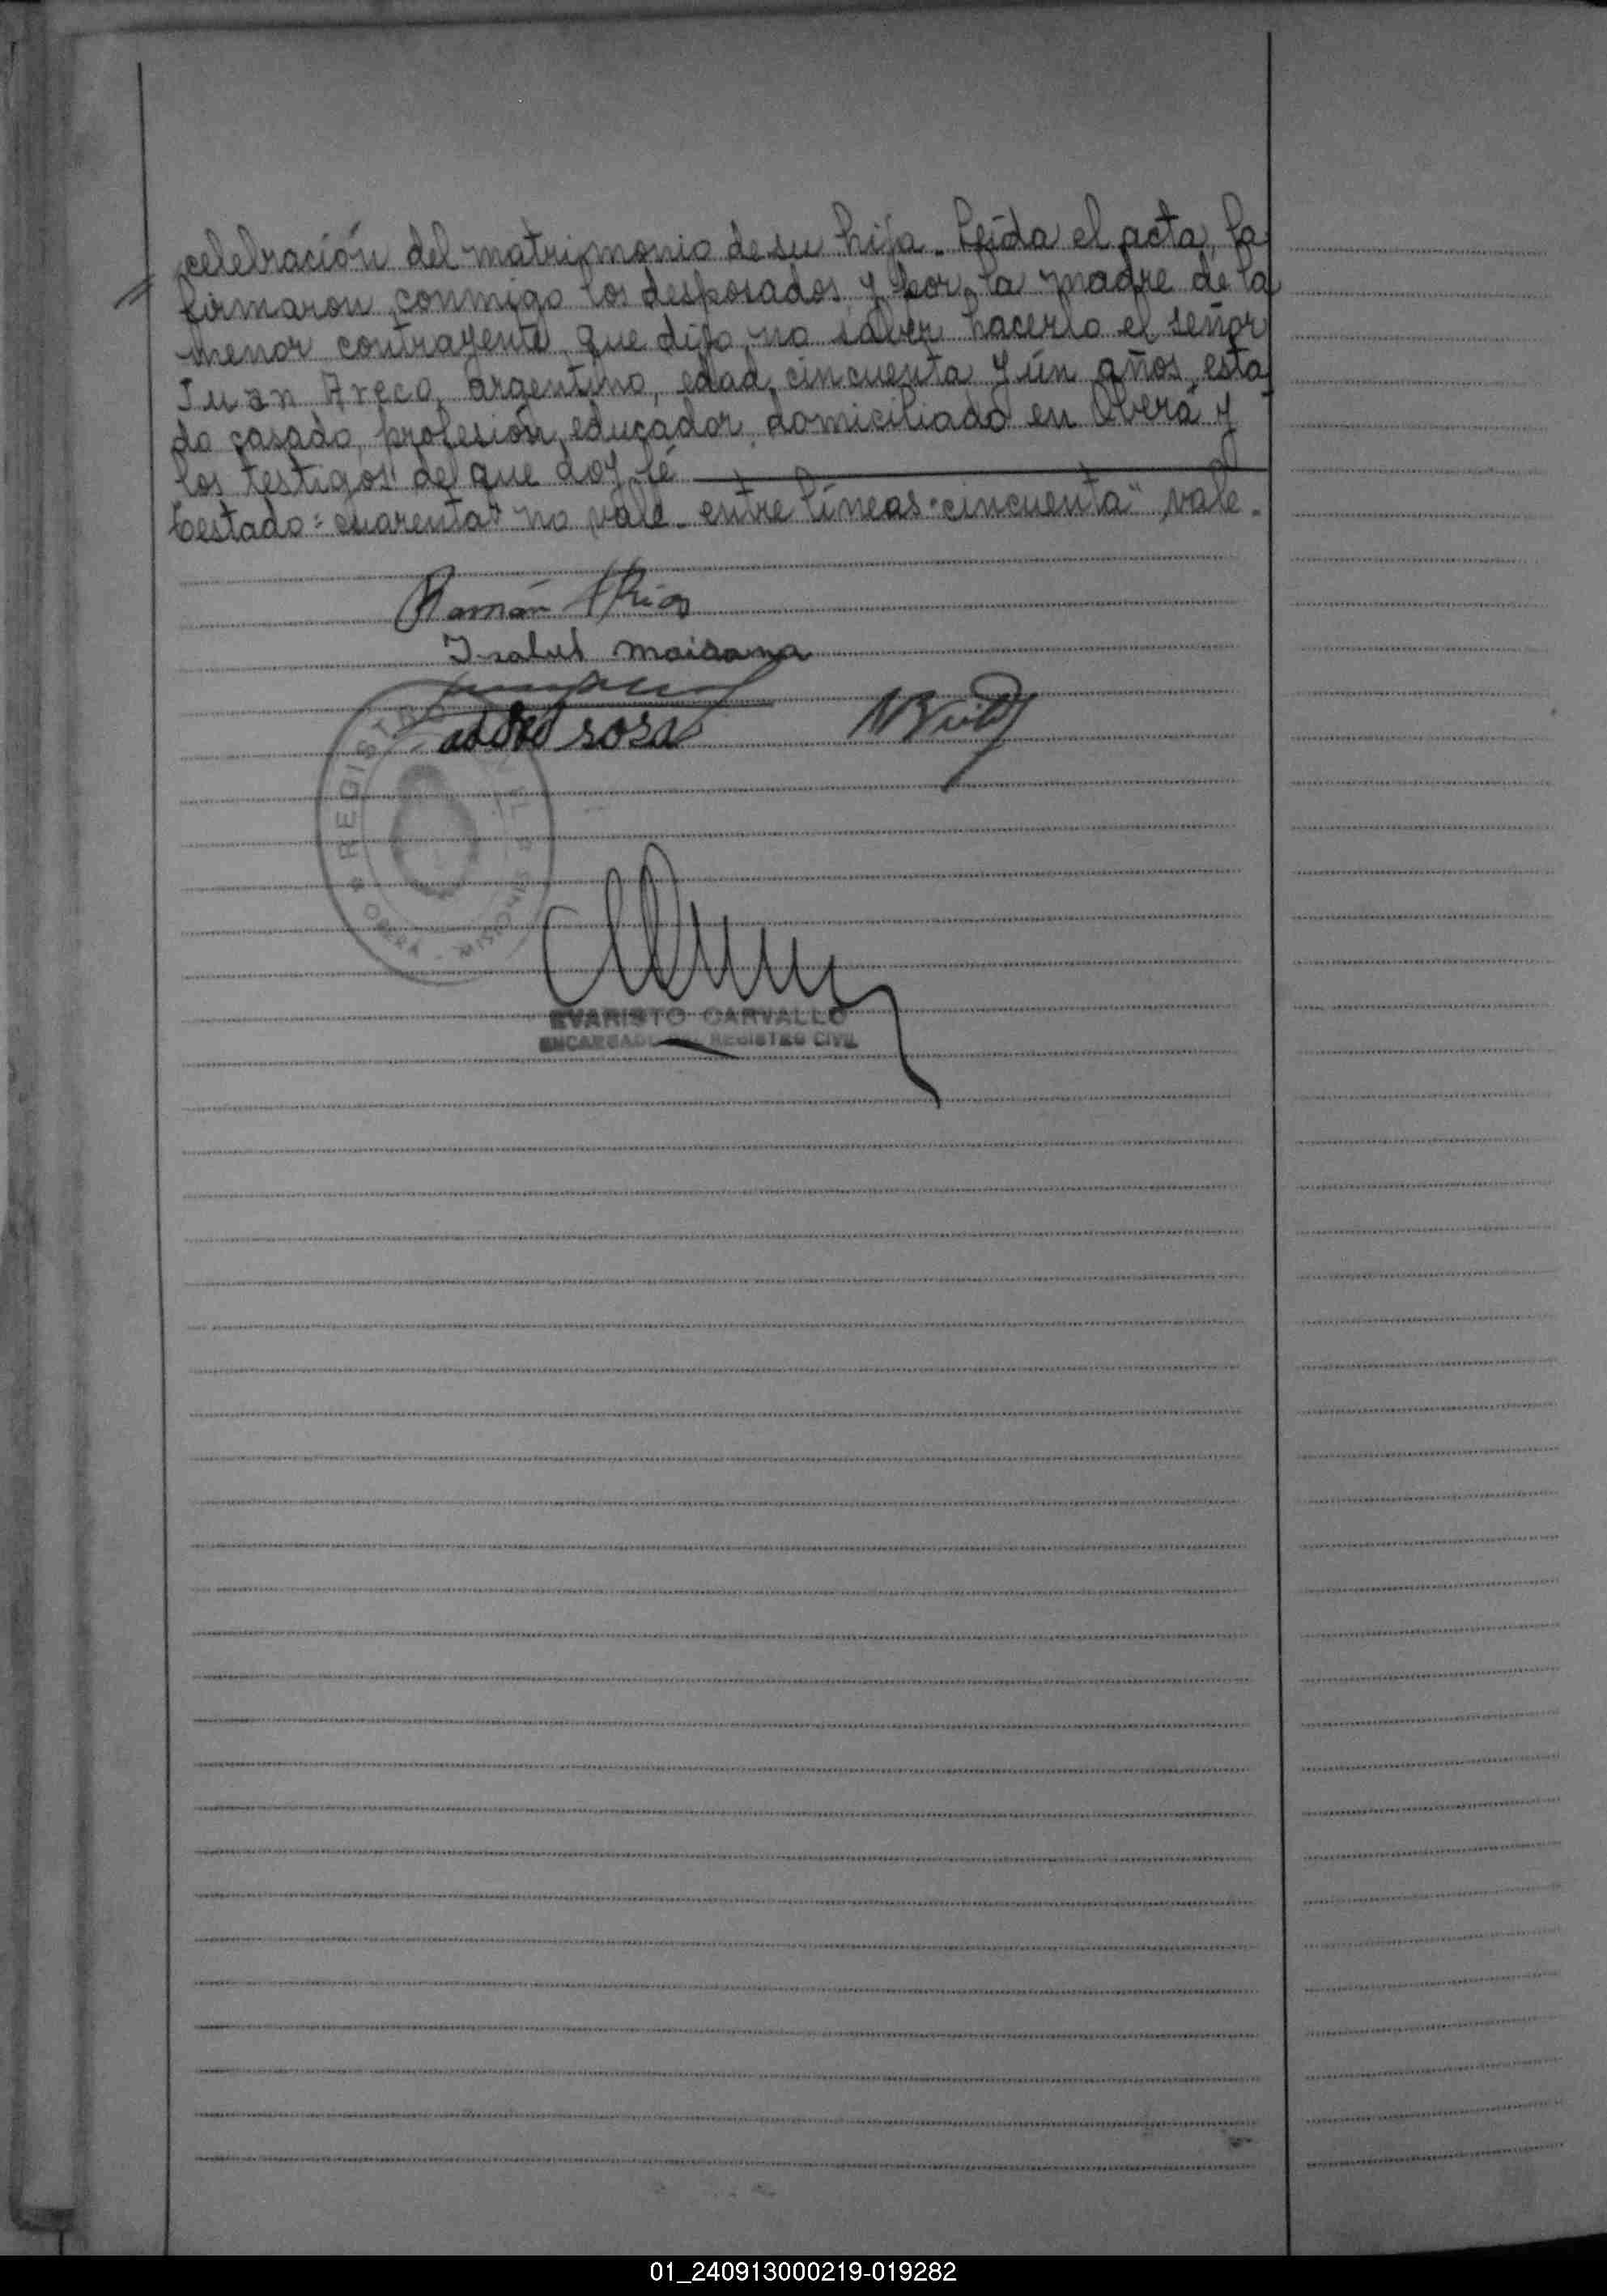 celebración del matrimonio de su hija. Leída el acta, la
firmaron conmigo los desposados y por la madre de la
menor contrayente, que dijo no saber hacerlo el señor
Juan Areco, argentino, edad cincuenta y ún años, esta
do casado, profesión educador, domiciliado en Oberá y
los testigos del que doy fé
testado = cuarenta" no vale. entre líneas "cincuenta" vale.
Ramón
Isabel
rosa
REGISTRO
OBERA - MISIONES
EVARISTO CARVALLO
ENCARGADO DEL REGISTRO CIVIL
01_240913000219-019282